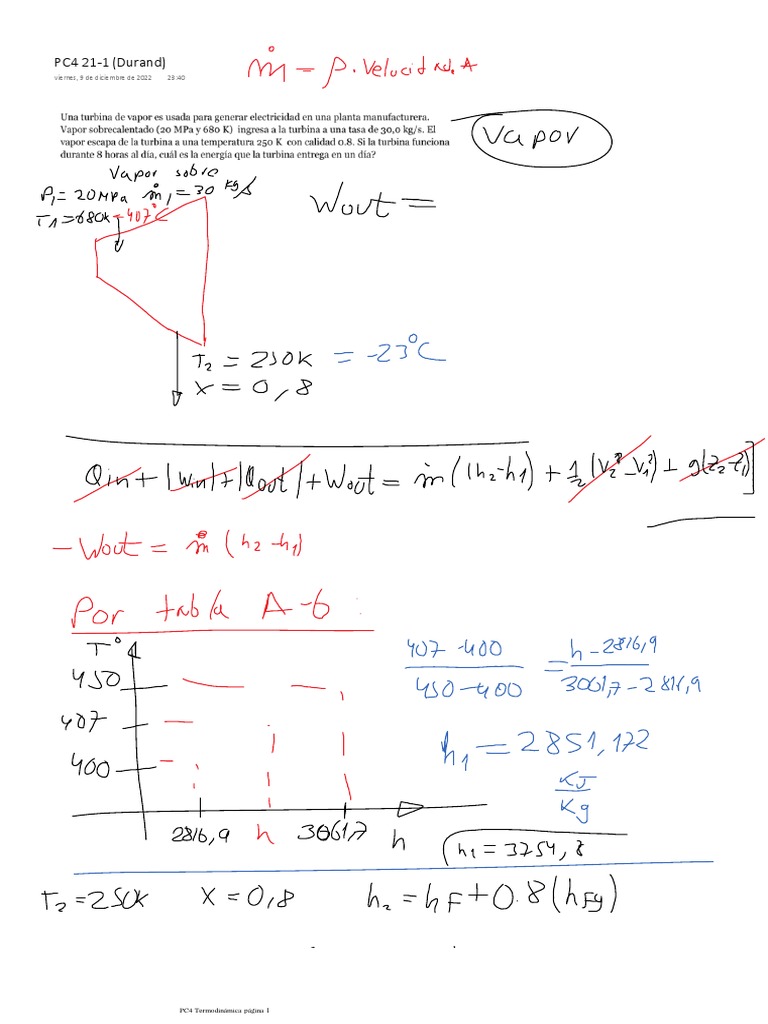 PC4 21-1 (Durand)
viernes, 9 de diciembre de 2022 23:40
ṁ = ρ. Velocidad. A
Una turbina de vapor es usada para generar electricidad en una planta manufacturera.
Vapor sobrecalentado (20 MPa y 680 K) ingresa a la turbina a una tasa de 30,0 kg/s. El
vapor escapa de la turbina a una temperatura 250 K con calidad 0.8. Si la turbina funciona
durante 8 horas al día, cuál es la energía que la turbina entrega en un día?
Vapor
Vapor sobre
P1 = 20MPa ṁ1 = 30 Kg/s
T1 = 680k = 407°C
Wout =
T2 = 250K = -23°C
X = 0,8
Qin + |Win| + |Qout| + Wout = ṁ (h2-h1) + 1/2 (V2² - V1²) + g(z2-z1)]
- Wout = ṁ (h2-h1)
Por tabla A-6 :
T°
450
407
400
2816,9 h 3061,7 h
407 - 400 / 450 - 400 = h - 2816,9 / 3061,7 - 2816,9
h1 = 2851,172
KJ/Kg
h1 = 3254,8
T2 = 250K X = 0,8 h2 = hF + 0.8 (hFg)
PC4 Termodinámica página 1